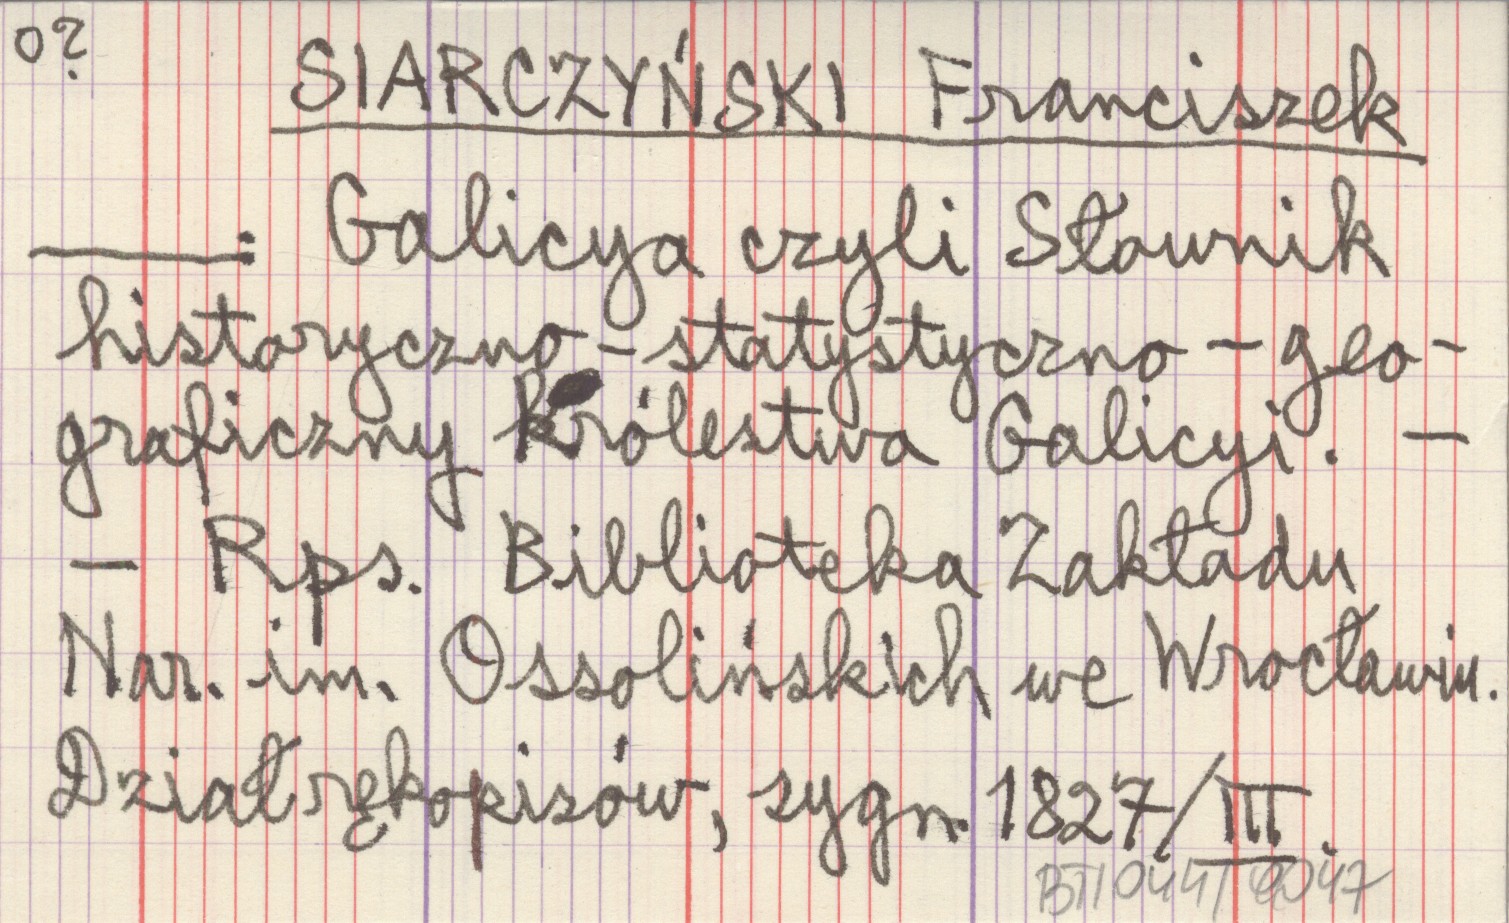 o?
SIARCZYŃSKI Franciszek
———: Galicya czyli Słownik
historyczno-statystyczno-geo-
graficzny Królestwa Galicyi. —
— Rps. Biblioteka Zakładu
Nar. im. Ossolińskich we Wrocławiu.
Dział rękopisów, sygn. 1827/III.